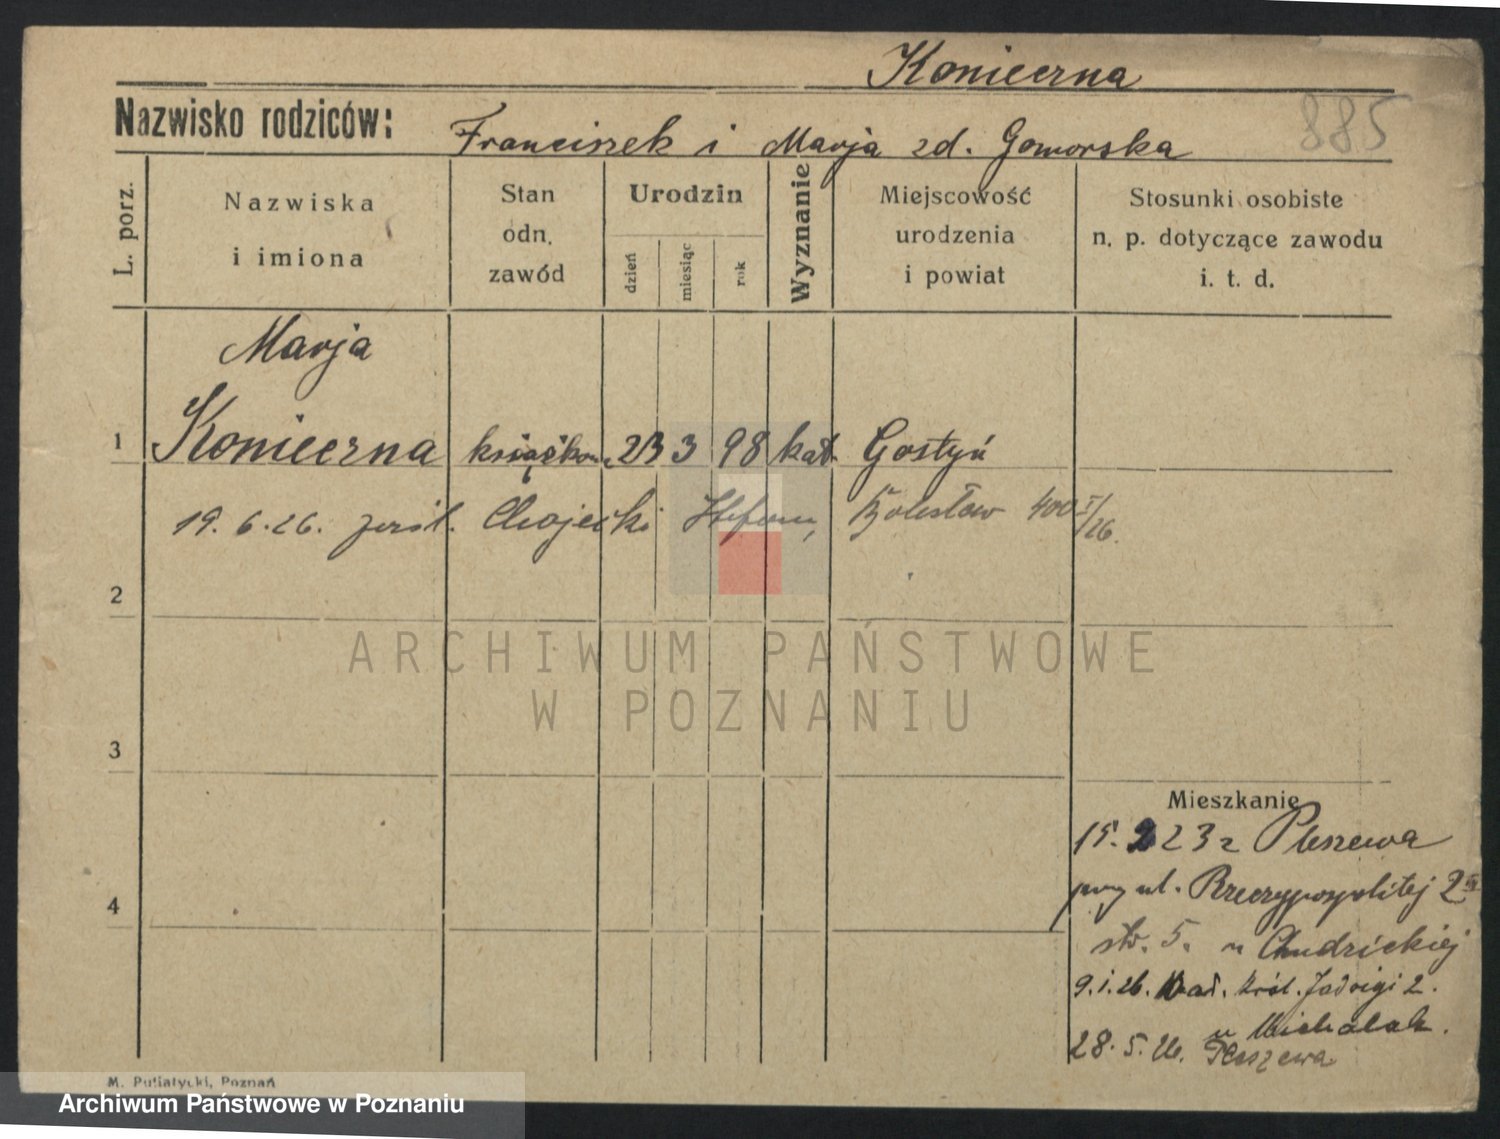 Konieczna
Nazwisko rodziców: Franciszek i Marja zd. Gomorska
885
L. porz.
Nazwiska i imiona
Stan odn. zawód
Urodzin
dzień
miesiąc
rok
Wyznanie
Miejscowość urodzenia i powiat
Stosunki osobiste n. p. dotyczące zawodu i. t. d.
Marja
1 Konieczna książkow. 23 3 98 kat. Gostyń
19. 6. 26. Chojecki Stefan, Bolesław 400 I/26.
2
ARCHIWUM PAŃSTWOWE
W POZNANIU
3
Mieszkanie
15. 2 23 z Pleszewa
przy ul. Rzeczypospolitej 2
str. 5. u Chudzickiej
4
9. 1. 26. Król. Jadwigi 2.
u Michalak.
28. 5. 26. Pleszewa
M. Putiatycki, Poznań
Archiwum Państwowe w Poznaniu